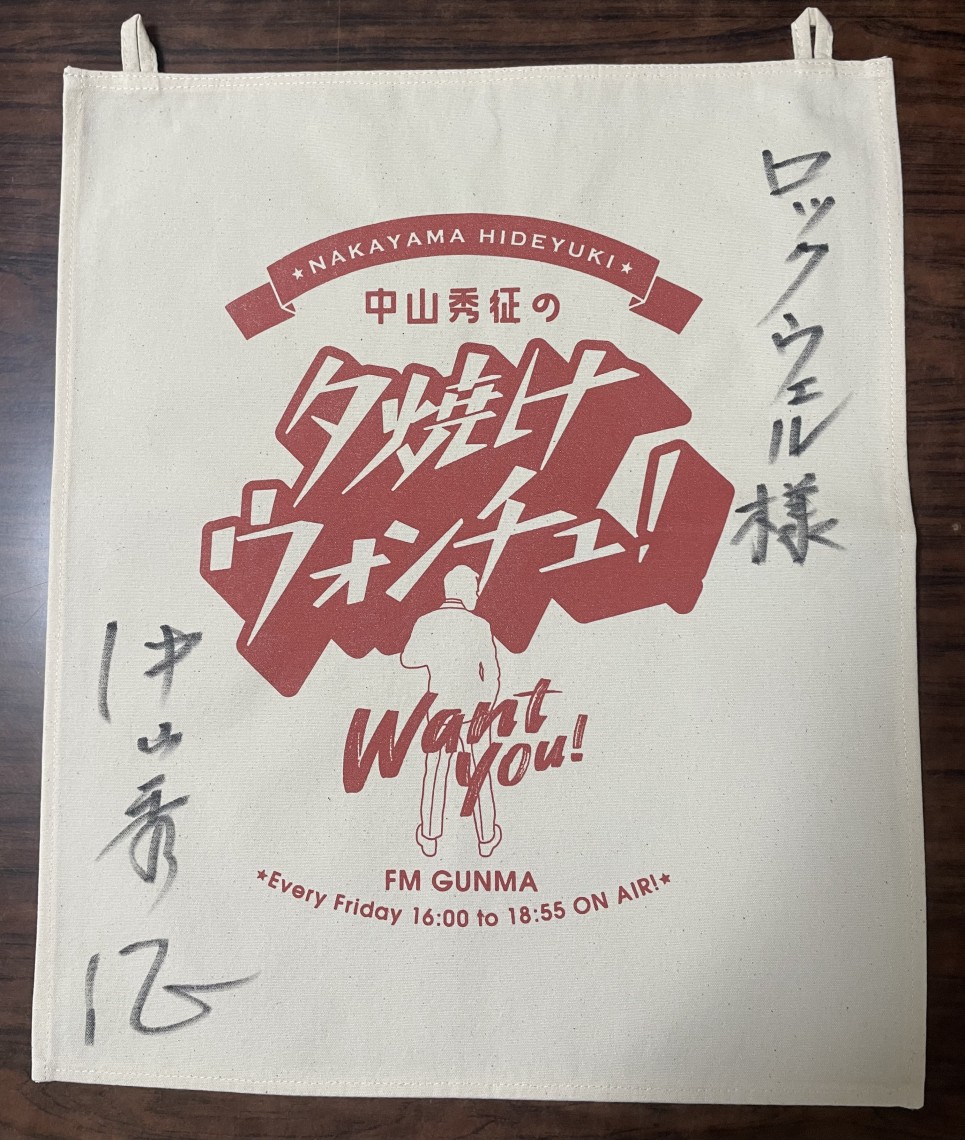 ★NAKAYAMA HIDEYUKI★
中山秀征の
夕焼け
ウォンチュ!
Want
you!
FM GUNMA
★Every Friday 16:00 to 18:55 ON AIR!★
ロックウェル様
中山秀征